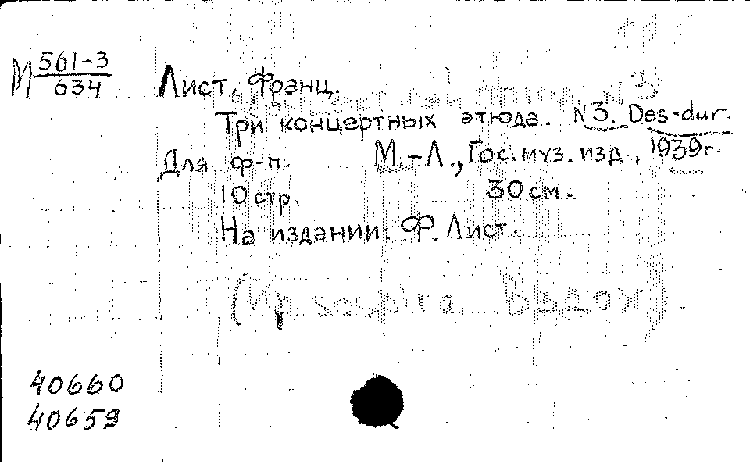 М 561-3
634
Лист, Франц.
Три концертных этюда. N3. Des-dur.
Для ф-п. М.-Л., Гос. муз. изд., 1939 г.
10 стр. 30 см.
На издании: Ф. Лист.
(Un sospiro. Вздох).
40660
40659